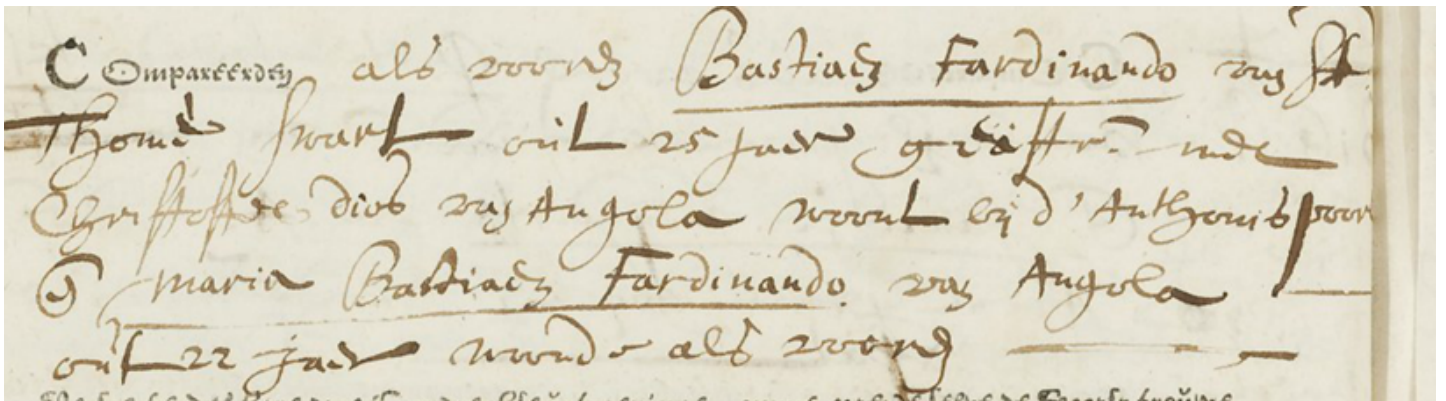 Compareerden als voorn Bastiaen Fardinando van St
Thome swart out 25 Jaer geass. mde
Christoffel dios van Angola woont bij d'Anthonis poor
& Maria Bastiaen Fardinando van Angola
out 22 jaer woonde als voorn